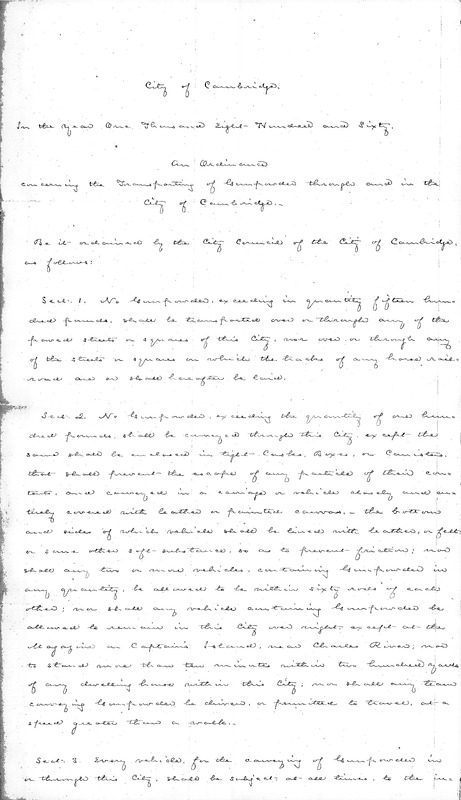 City of Cambridge.
In the year One Thousand Eight Hundred and Sixty.
An Ordinance
concerning the Transporting of Gunpowder through and in the
City of Cambridge.
Be it ordained by the City Council of the City of Cambridge,
as follows:
Sect. 1. No Gunpowder, exceeding in quantity fifteen hun-
dred pounds, shall be transported over or through any of the
paved streets or squares of this City, nor over or through any
of the streets or squares on which the tracks of any horse rail-
road are or shall hereafter be laid.
Sect. 2. No Gunpowder, exceeding the quantity of one hun-
dred pounds, shall be conveyed through this City, except the
same shall be enclosed in tight Casks, Boxes, or Canisters,
that shall prevent the escape of any particle of their con-
tents, and conveyed in a carriage or vehicle closely and en-
tirely covered with leather or painted canvas, - the bottom
and sides of which vehicle shall be lined with leather, or felt,
or some other soft substance, so as to prevent friction; nor
shall any two or more vehicles, containing Gunpowder in
any quantity, be allowed to be within sixty rods of each
other; nor shall any vehicle containing Gunpowder be
allowed to remain in this City over night, except at the
Magazine on Captain's Island, near Charles River; nor
to stand more than ten minutes within two hundred yards
of any dwelling house within this City; nor shall any team
conveying Gunpowder be driven, or permitted to travel, at a
speed greater than a walk.
Sect. 3. Every vehicle, for the conveying of Gunpowder in
or through this City, shall be subject, at all times, to the in-